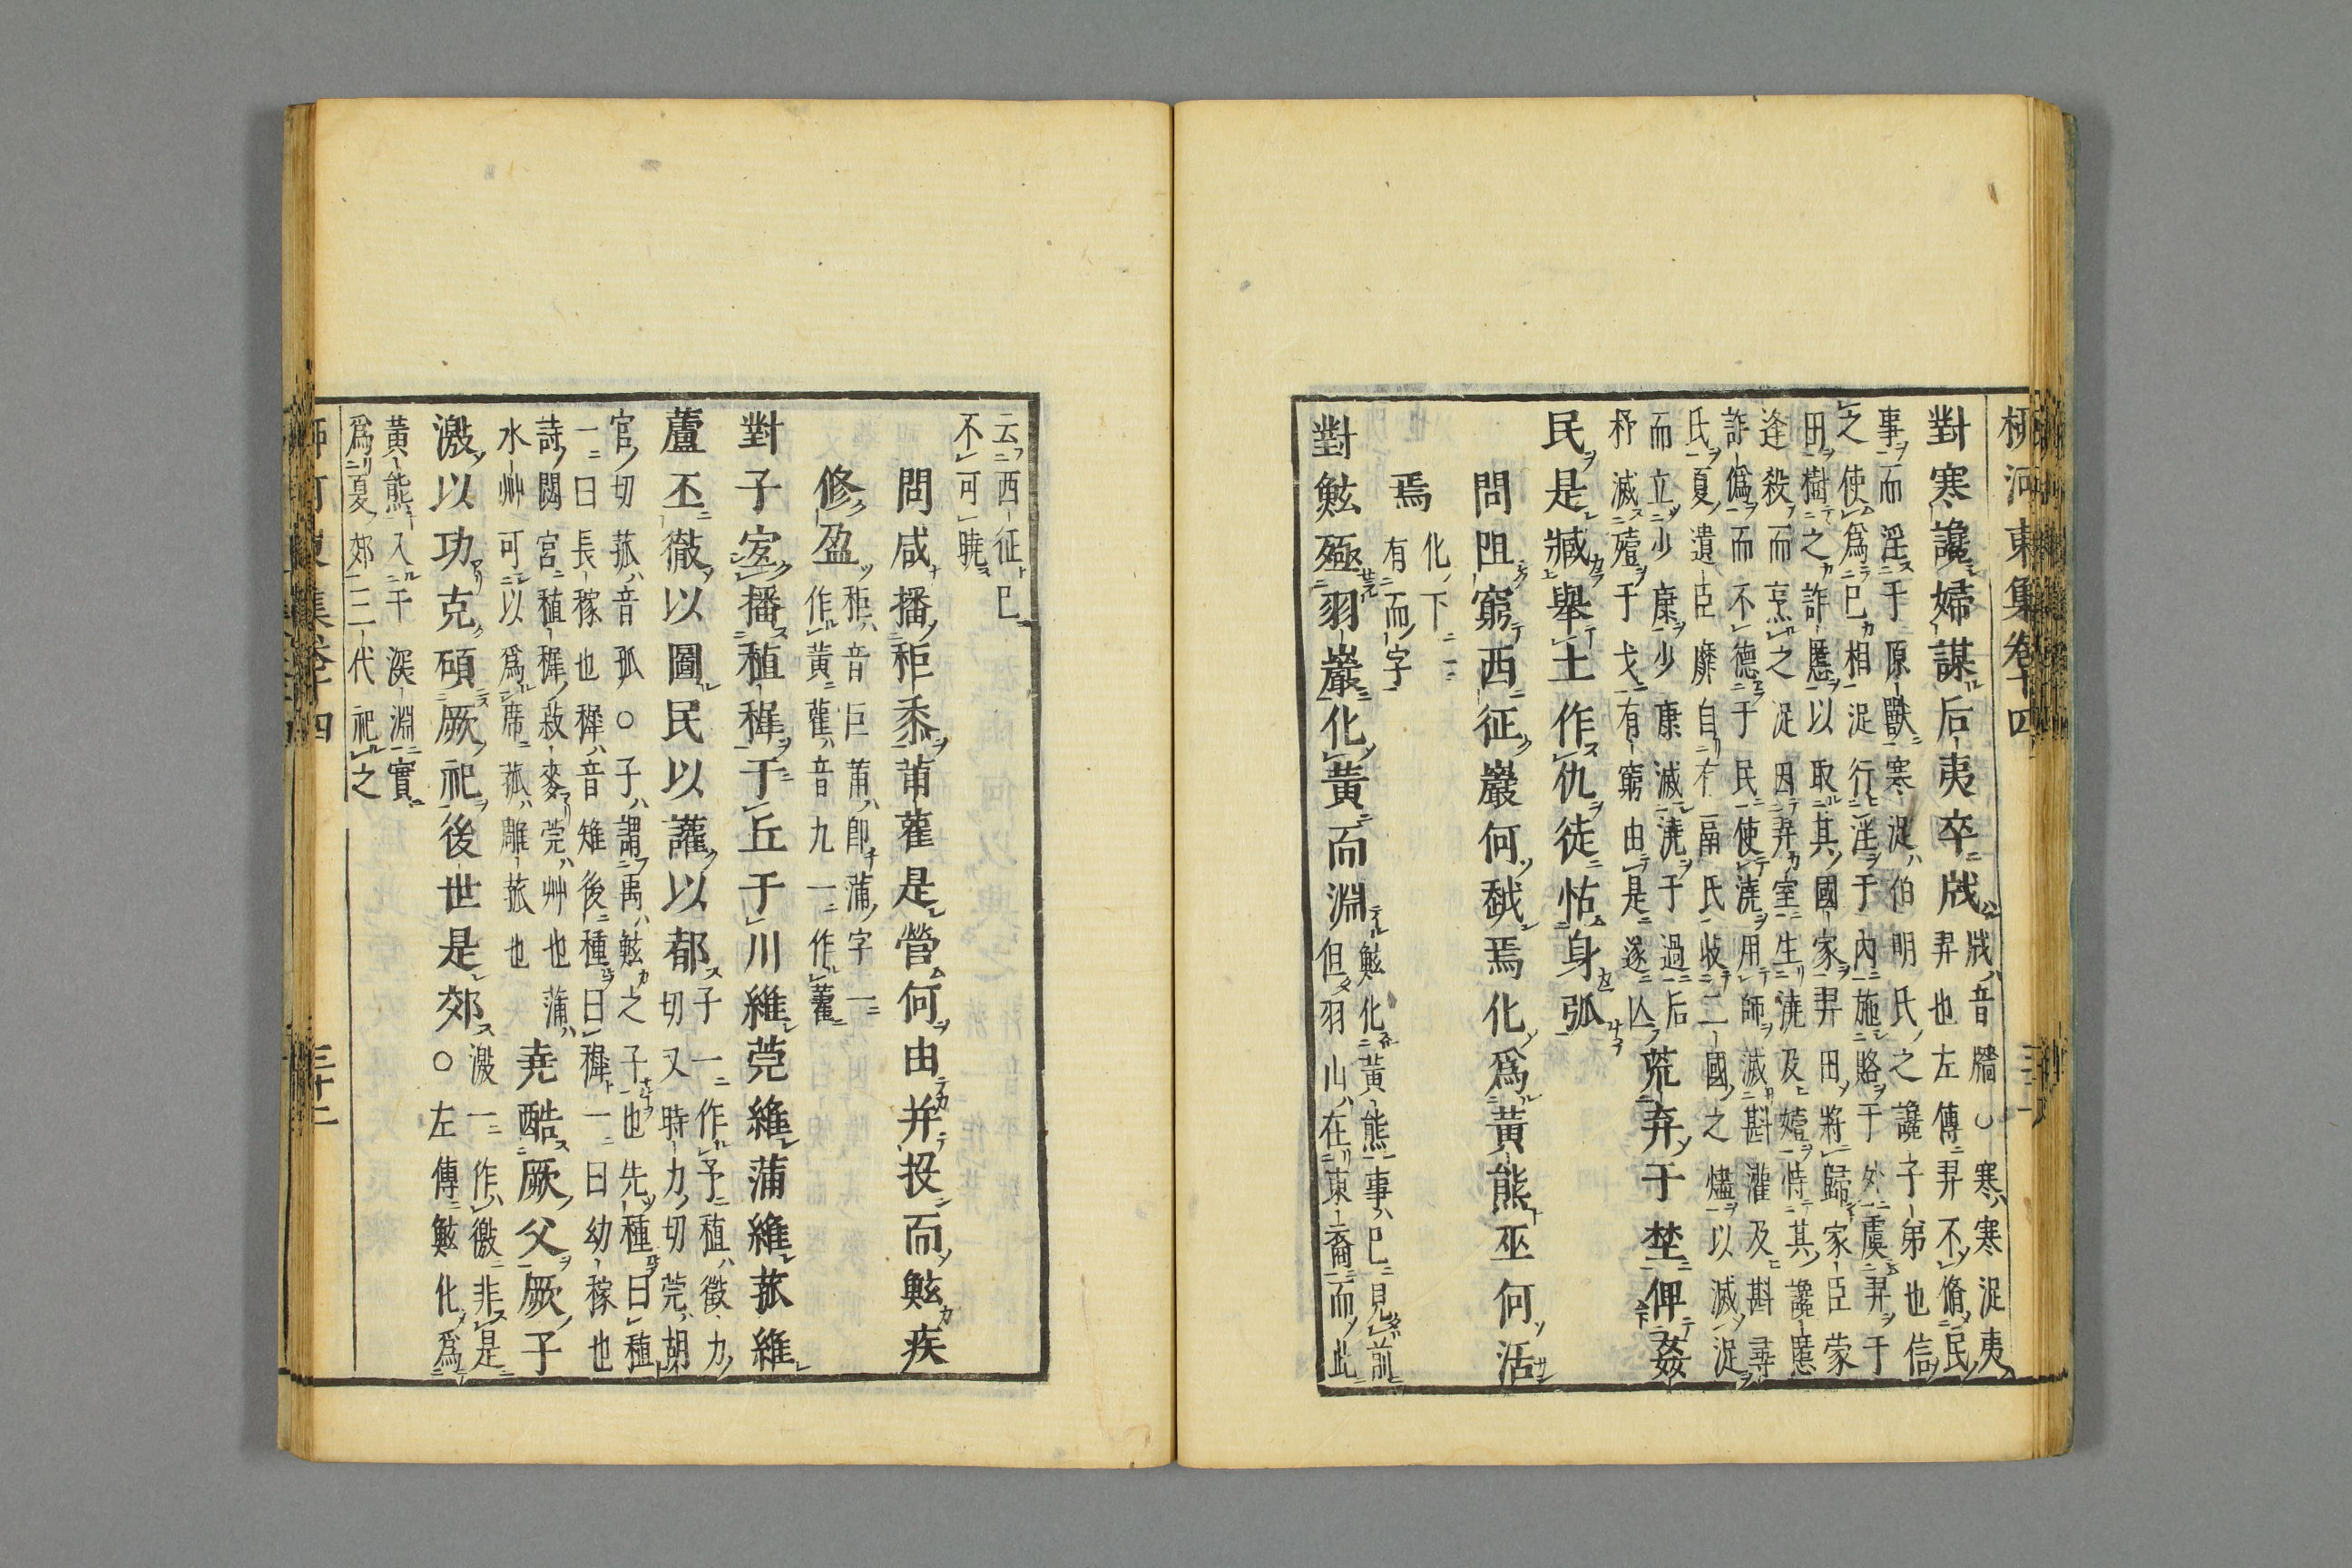 柳河東集卷十四
對寒讒婦謀后夷卒戕
戕音牆○寒寒浞夷
羿也左傳羿不脩民
事而淫于原獸寒浞伯明氏之讒子弟也信
之使爲已相浞行淫于內施賂于外虞羿于
田樹之詐慝以取其國家羿田將歸家臣蒙
逢殺而烹之浞因羿室生澆及豷恃其讒慝
詐僞而不德于民使澆用師滅斟灌及斟尋
氏夏遺臣靡自有鬲氏收二國之燼以滅浞
而立少康少康滅澆于過后
杼滅豷于戈有窮由是遂亾
荒弃于埜俾姦
民是臧舉土作仇徒怙身弧
問阻窮西征巖何越焉化爲黃熊巫何活
焉
化下一
有而字
對鮌殛羽巖化黃而淵
鮌化黃熊事已見前
但羽山在東裔而此
云西征已
不可曉
問咸播秬黍莆雚是營何由并投而鮌疾
修盈
秬音巨莆即蒲字一
作黃雚音九一作藿
對子㝌播稙稺于丘于川維莞維蒲維菰維
蘆丕徹以圖民以讙以都
子一作予稙徵力
切又時力切莞胡
官切菰音孤○子謂禹鮌之子也先種曰稙
一曰長稼也稺音雉後種曰稺一曰幼稼也
詩閟宮稙稺菽麥莞艸也蒲
水艸可以爲席菰雕菰也
堯酷厥父厥子
激以功克碩厥祀後世是郊
激一作徼非是
○左傳鮌化爲
黃熊入于深淵實
爲夏郊三代祀之
河東集卷十四 三十二